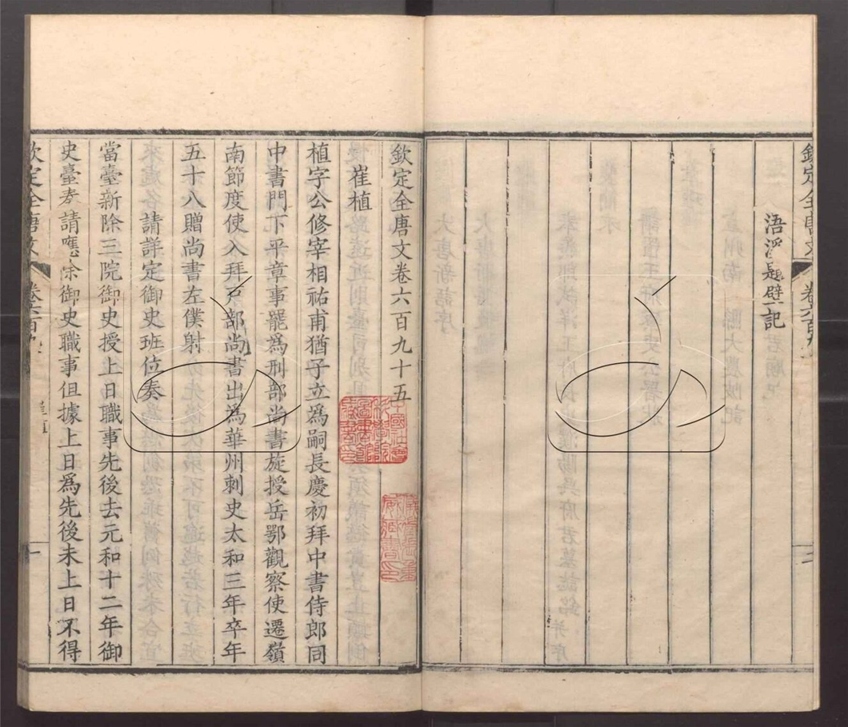 浯溪題壁記
欽定全唐文卷六百九十五
崔植
植字公修宰相祐甫猶子立為嗣長慶初拜中書侍郎同
中書門下平章事罷為刑部尚書旋授岳鄂觀察使遷嶺
南節度使入拜戸部尚書出為華州刺史太和三年卒年
五十八贈尚書左僕射
請詳定御史班位奏
當臺新除三院御史授上日職事先後去元和十二年御
史臺奏請應除御史職事但據上日為先後未上日不得
欽定全唐文